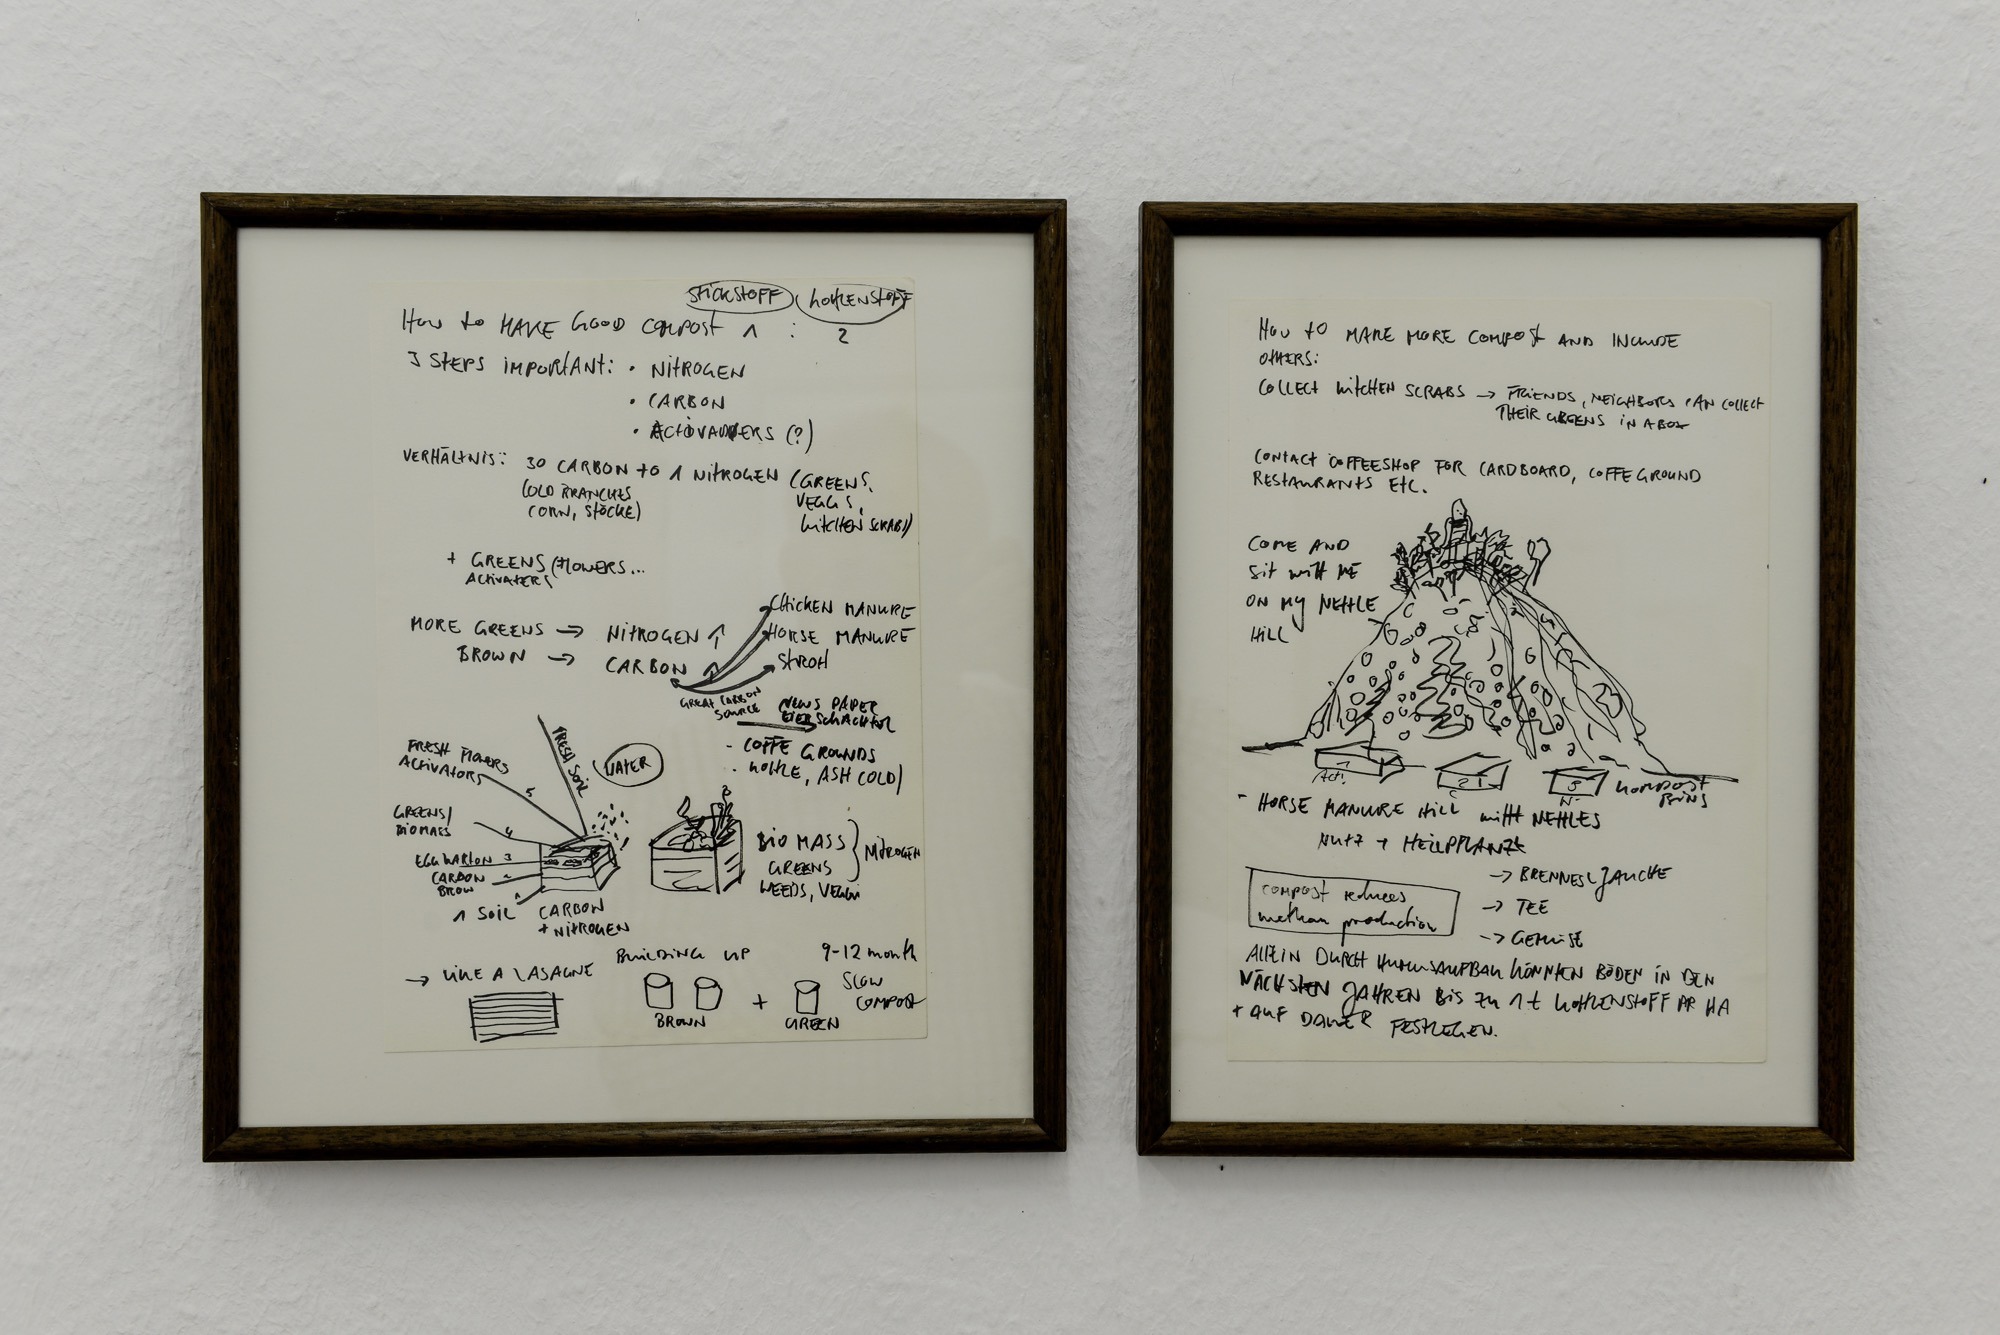 STICKSTOFF KOHLENSTOFF
HOW to MAKE GOOD COMPOST 1 : 2
3 STEPS IMPORTANT: • NITROGEN
• CARBON
• ACTIVATERS (?)
VERHÄLTNIS: 30 CARBON to 1 NITROGEN (GREENS,
(OLD BRANCHES VEGGS,
CORN, STÖCKE) KITCHEN SCRABS)
+ GREENS (FLOWERS...
ACTIVATERS
CHICKEN MANURE
MORE GREENS → NITROGEN ↑ HORSE MANURE
BROWN → CARBON ↑ STROH
GREAT CARBON SOURCE
NEWS PAPER
EIERSCHACHTEL
- COFFE GROUNDS
- KOHLE, ASH COLD)
FRESH SOIL
WATER
FRESH FLOWERS
ACTIVATORS 5
GREENS/ 4
BIOMASS
EGG KARTON 3
CARBON 2
BROWN
1 SOIL
CARBON
+ NITROGEN
BIO MASS } NITROGEN
GREENS
WEEDS, VEGGI
→ LIKE A LASAGNE
BUILDING UP
BROWN + GREEN
9-12 month
SLOW
COMPOST
HOW tO MAKE MORE COMPOST AND INCLUDE
OTHERS:
COLLECT KITCHEN SCRABS → FRIENDS, NEIGHBORS CAN COLLECT
THEIR GREENS IN A BOX
CONTACT COFFEESHOP FOR CARDBOARD, COFFEGROUND
RESTAURANTS ETC.
COME AND
Sit witH ME
ON MY NETTLE
HILL
KOMPOST
BINS
- HORSE MANURE HILL witH NETTLES
NUTZ + HEILPFLANZE
→ BRENNESLJAUCHE
→ TEE
→ GEMÜSE
compost reduces
methan production
ALLEIN DURCH HUMUSAUFBAU KÖNNTEN BÖDEN IN DEN
NÄCHSTEN JAHREN BIS ZU 1 t KOHLENSTOFF PR HA
+ AUF DAUER FESTLEGEN.